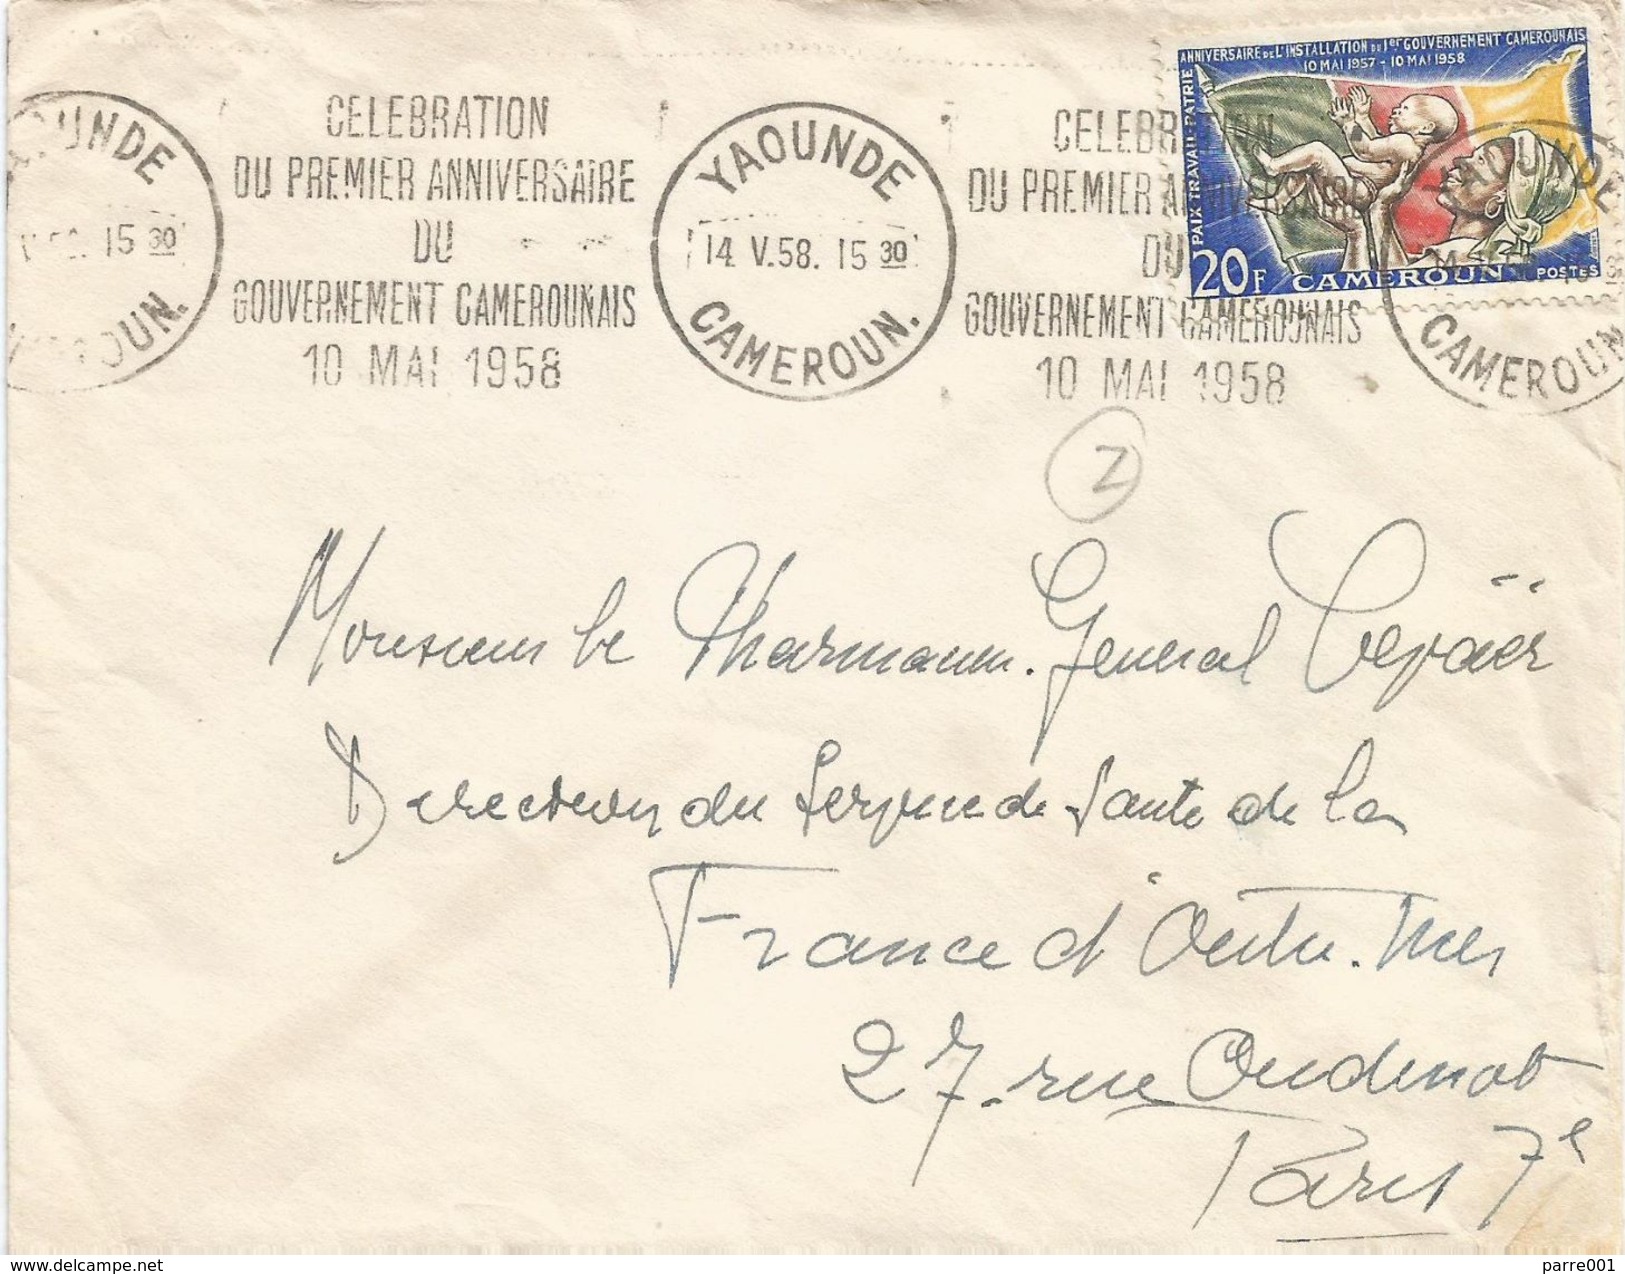 ANNIVERSAIRE DE L'INSTALLATION DU 1er GOUVERNEMENT CAMEROUNAIS
10 MAI 1957 - 10 MAI 1958
PAIX-TRAVAIL-PATRIE
20F CAMEROUN POSTES
YAOUNDE
15 30
CELEBRATION
DU PREMIER ANNIVERSAIRE
DU
GOUVERNEMENT CAMEROUNAIS
10 MAI 1958
YAOUNDE
14 V.58. 15 30
CAMEROUN.
CELEBRATION
DU PREMIER ANNIVERSAIRE
DU
GOUVERNEMENT CAMEROUNAIS
10 MAI 1958
YAOUNDE
CAMEROUN
Z
Monsieur le Pharmacien. Général
Direction du Service de Santé de la
France d'Outre. Mer
27. rue Oudinot
Paris 7e
delcampe.net
parre001